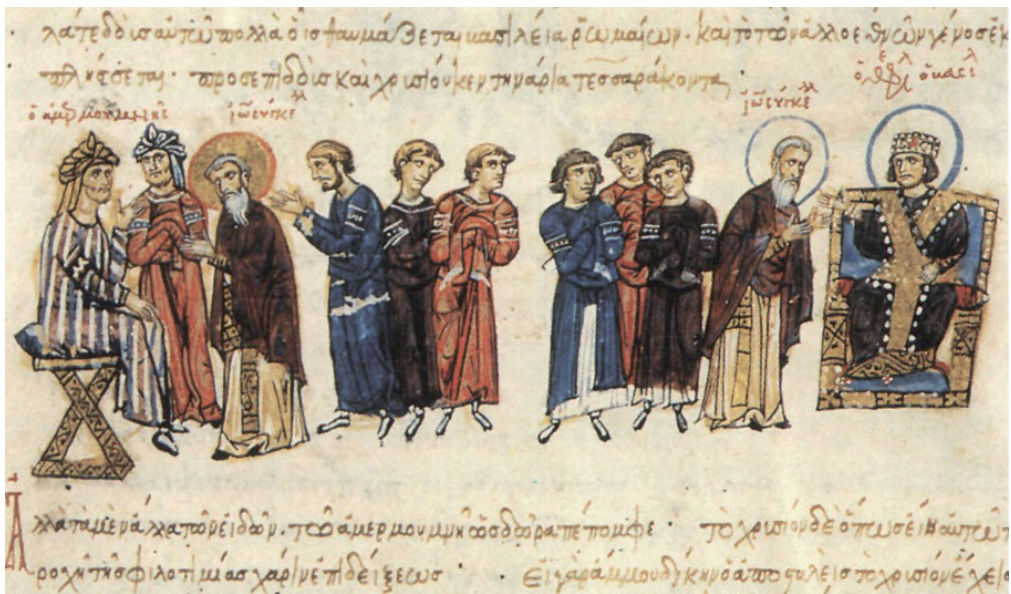 λατε δοὺς αὐτῶ πολλὰ οἷς θαυμάζεται βασιλεία ρωμαίων. καὶ τὸ τῶν ἄλλο ἐθνῶν γένος ἐκ
πλήσσεται. προσεπιδοὺς καὶ χρυσίου κεντηνάρια τεσσαράκοντα
ὁ ἀμερμουμνῆς
ἰω σύγκελ
ἰω σύγκελ
ὁ θεόφιλ ὁ βασιλ
Ἀλλὰ τὰ μὲν ἄλλα τῶν εἰδῶν. τῶ ἀμερμουμνῆ ὡς δῶρα πέπομφε. τὸ χρυσίον δὲ ὅπως εἴη αὐτῶ
ροχὴ τῆς φιλοτιμίας χάριν ἐπιδείξεως. Εἰ γὰρ ἄμμου δίκην ὁ ἀποσταλεὶς τὸ χρυσίον